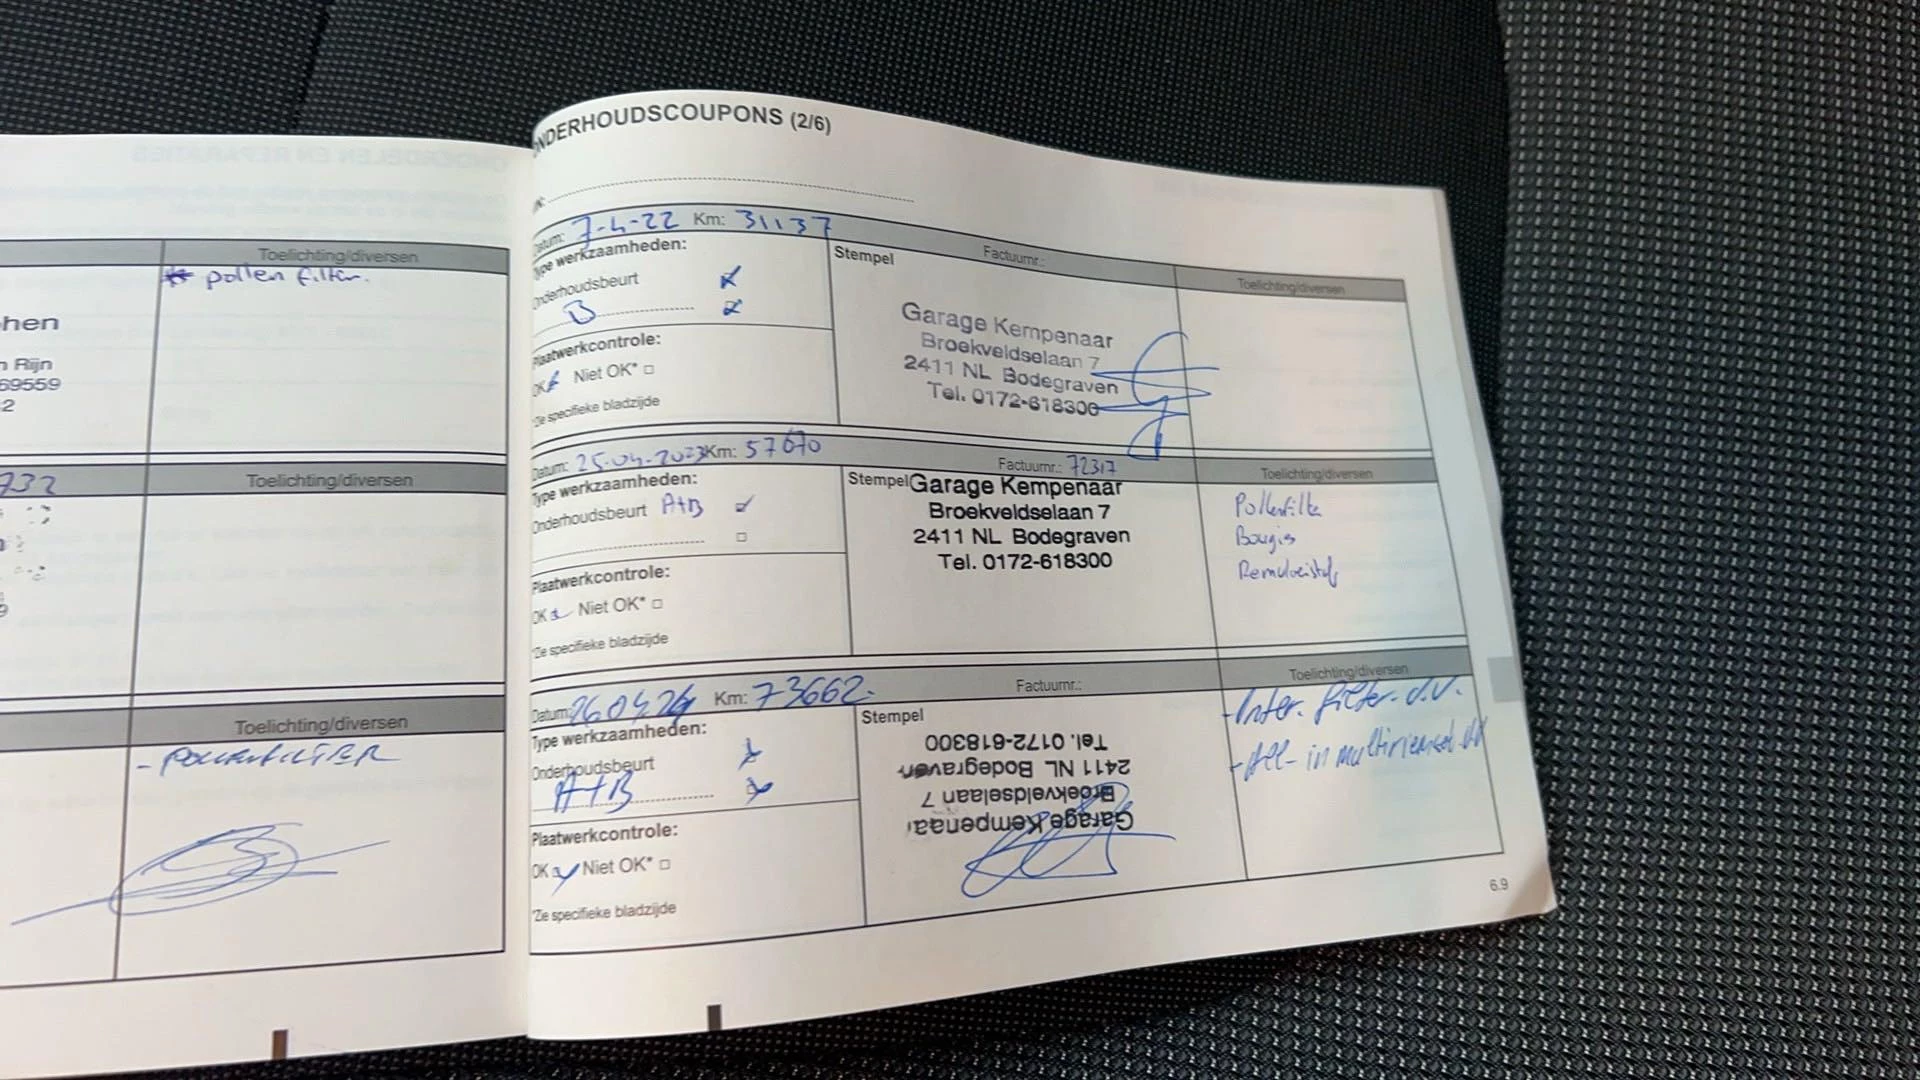 Toelichting/diversen
* pollen filter.
hen
n Rijn
69559
2
732
Toelichting/diversen
Toelichting/diversen
- POLLENFILTER
NDERHOUDSCOUPONS (2/6)
Datum: 7-4-22 Km: 31137
Factuurnr.:
Type werkzaamheden:
Stempel
Toelichting/diversen
Onderhoudsbeurt
B
Plaatwerkcontrole:
OK Niet OK*
*Zie specifieke bladzijde
Garage Kempenaar
Broekveldselaan 7
2411 NL Bodegraven
Tel. 0172-618300
Datum: 25-04-2023 Km: 57670
Factuurnr.: 72317
Toelichting/diversen
Type werkzaamheden:
Stempel
Onderhoudsbeurt A+B
Plaatwerkcontrole:
OK Niet OK*
*Zie specifieke bladzijde
Garage Kempenaar
Broekveldselaan 7
2411 NL Bodegraven
Tel. 0172-618300
Pollenfilter
Bougis
Remvloeistof
Datum: 260424 Km: 73662.
Factuurnr.:
Toelichting/diversen
Type werkzaamheden:
Stempel
Onderhoudsbeurt
A+B
Plaatwerkcontrole:
OK Niet OK*
*Zie specifieke bladzijde
Garage Kempenaar
Broekveldselaan 7
2411 NL Bodegraven
Tel. 0172-618300
- Inter. filter. v.v.
- All-in multiriemset vv
6.9